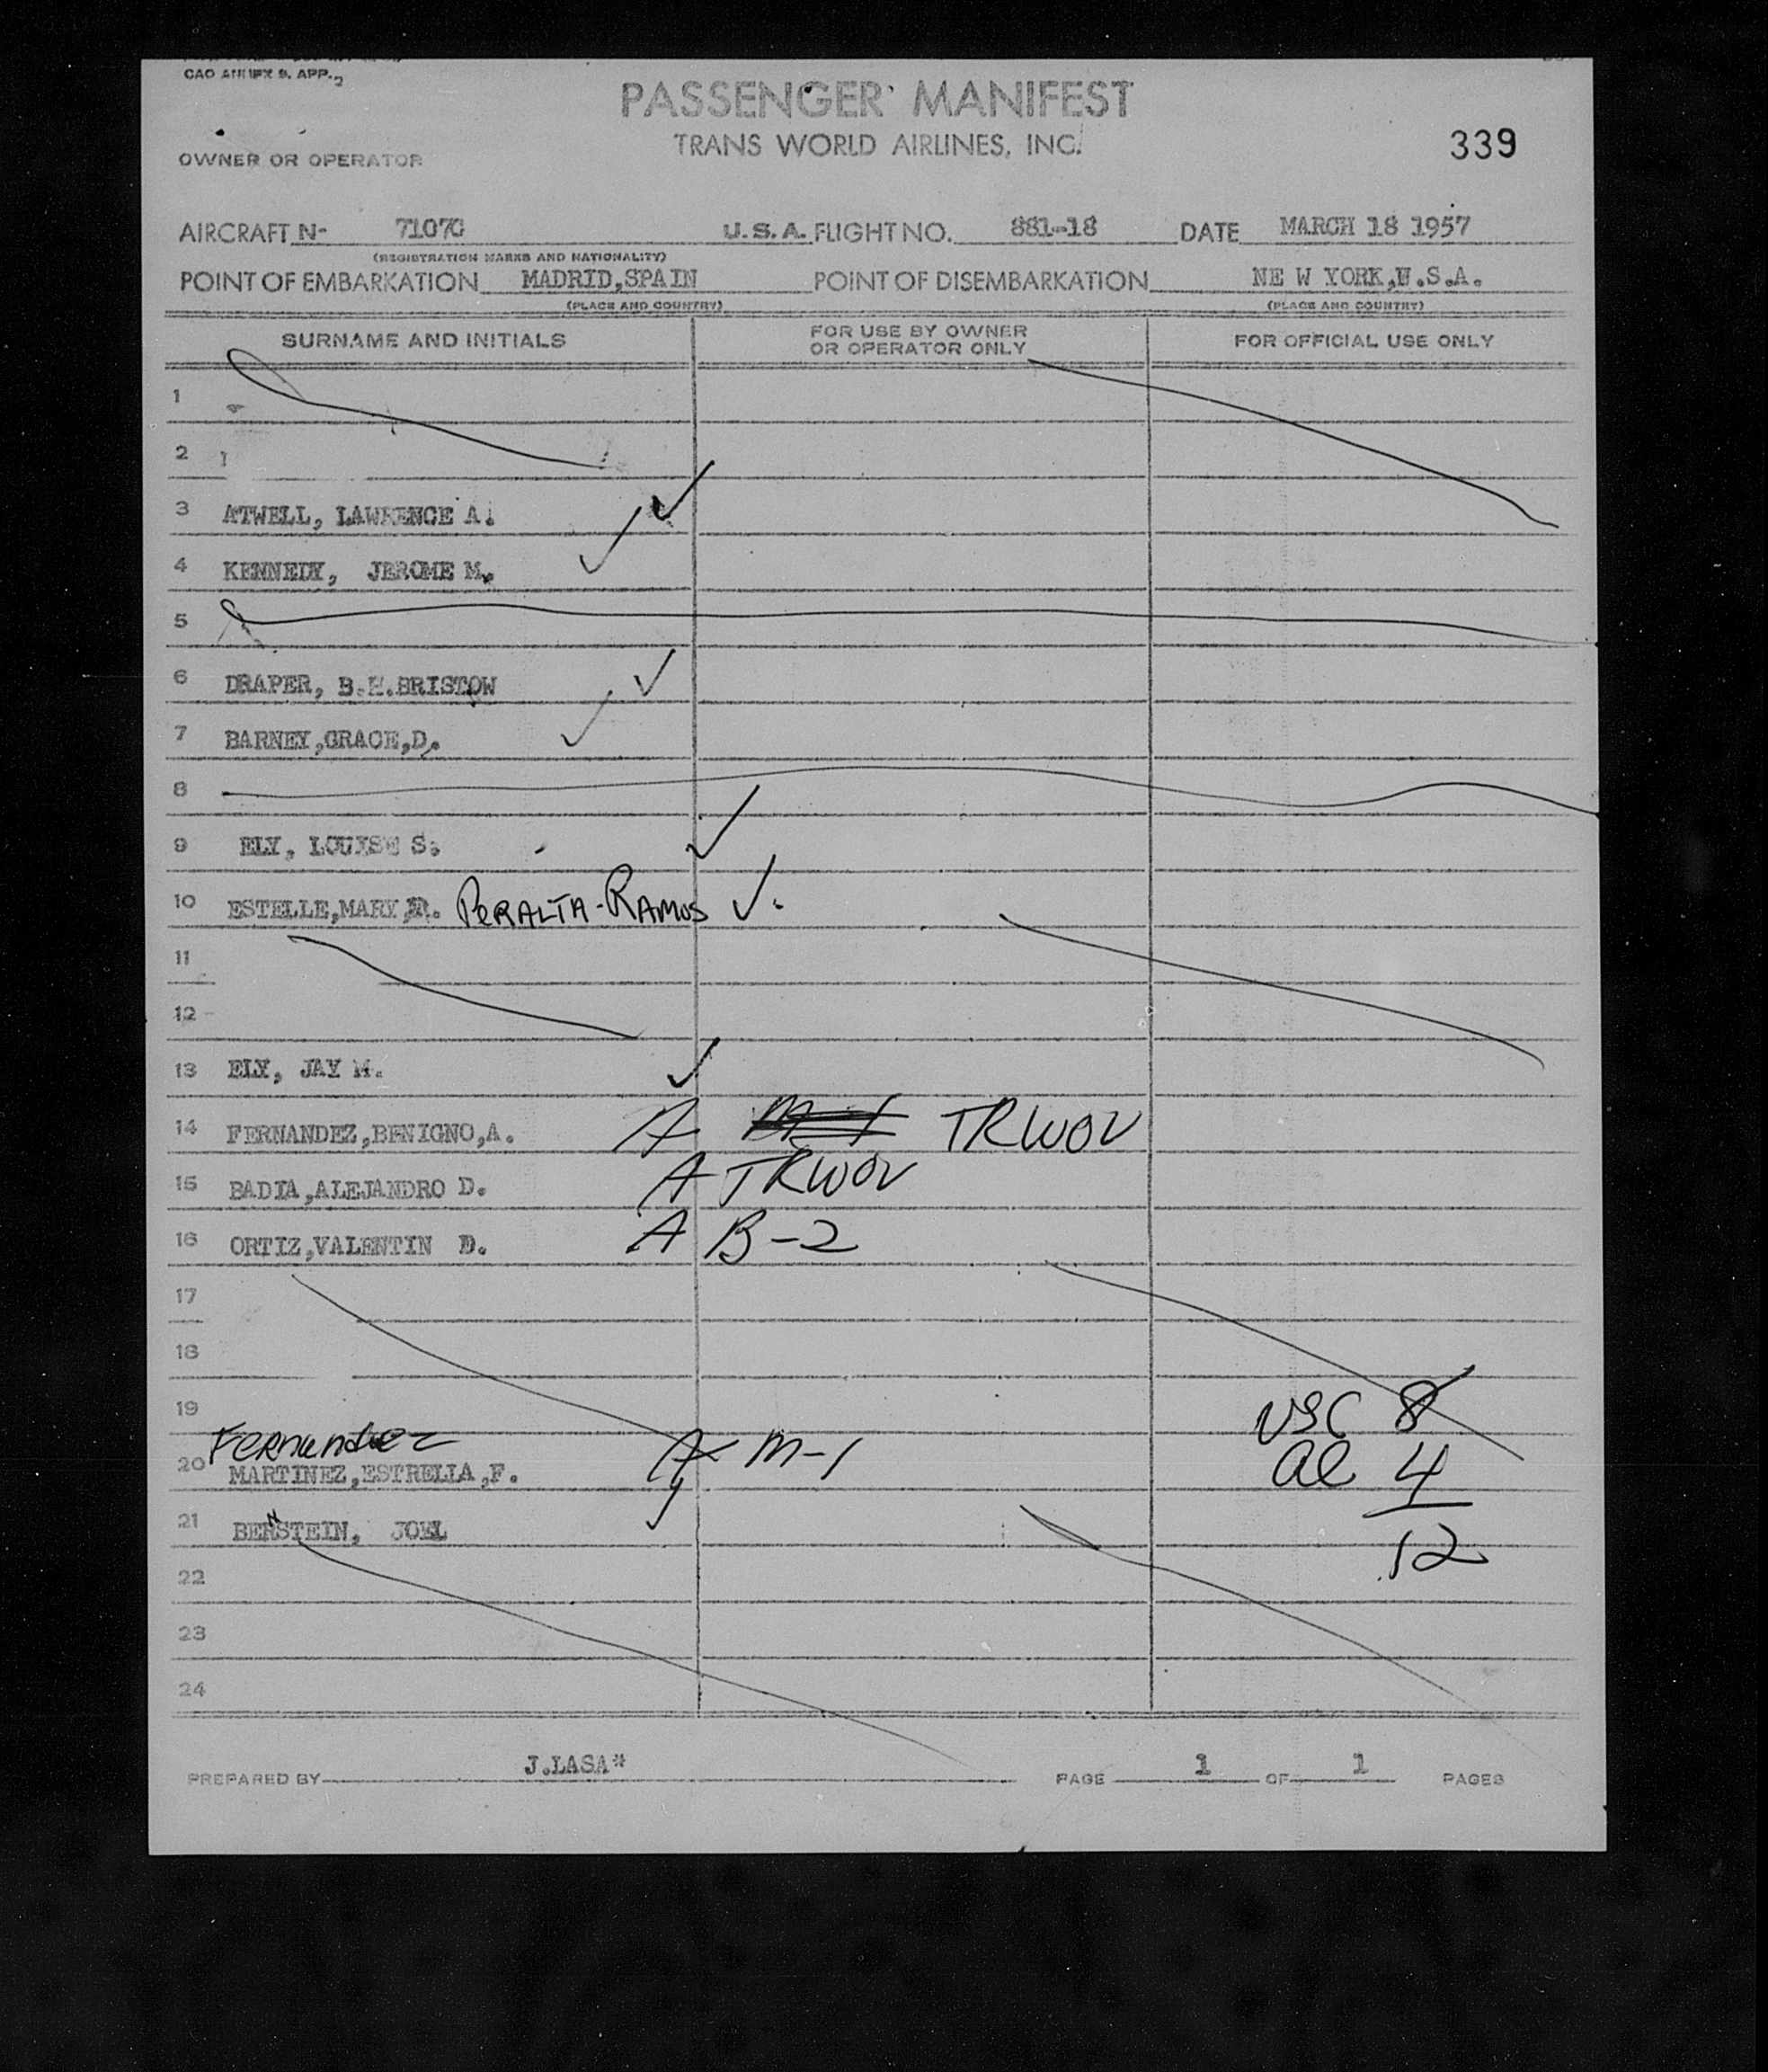 CAO ANNEX 9. APP. 2
PASSENGER MANIFEST
TRANS WORLD AIRLINES, INC.
339
OWNER OR OPERATOR
AIRCRAFT N- 7107C U.S.A. FLIGHT NO. 881-18 DATE MARCH 18 1957
(REGISTRATION MARKS AND NATIONALITY)
POINT OF EMBARKATION MADRID,SPAIN POINT OF DISEMBARKATION NE W YORK,U.S.A.
(PLACE AND COUNTRY) (PLACE AND COUNTRY)
SURNAME AND INITIALS FOR USE BY OWNER OR OPERATOR ONLY FOR OFFICIAL USE ONLY
1
2
3 ATWELL, LAWRENCE A. ✓
4 KENNEDY, JEROME M. ✓
5
6 DRAPER, B.H.BRISTOW ✓
7 BARNEY,GRACE,D. ✓
8
9 ELY, LOUISE S. ✓
10 ESTELLE,MARY,R. PERALTA-RAMOS ✓
11
12
13 ELY, JAY M. ✓
14 FERNANDEZ,BENIGNO,A. A M-1 TRWOV
15 BADIA,ALEJANDRO D. A TRWOV
16 ORTIZ,VALENTIN D. A B-2
17
18
19 USC 8
Fernandez
20 MARTINEZ,ESTRELLA,F. A M-1 al 4
21 BERNSTEIN, JOEL ✓ 12
22
23
24
PREPARED BY J.LASA* PAGE 1 OF 1 PAGES